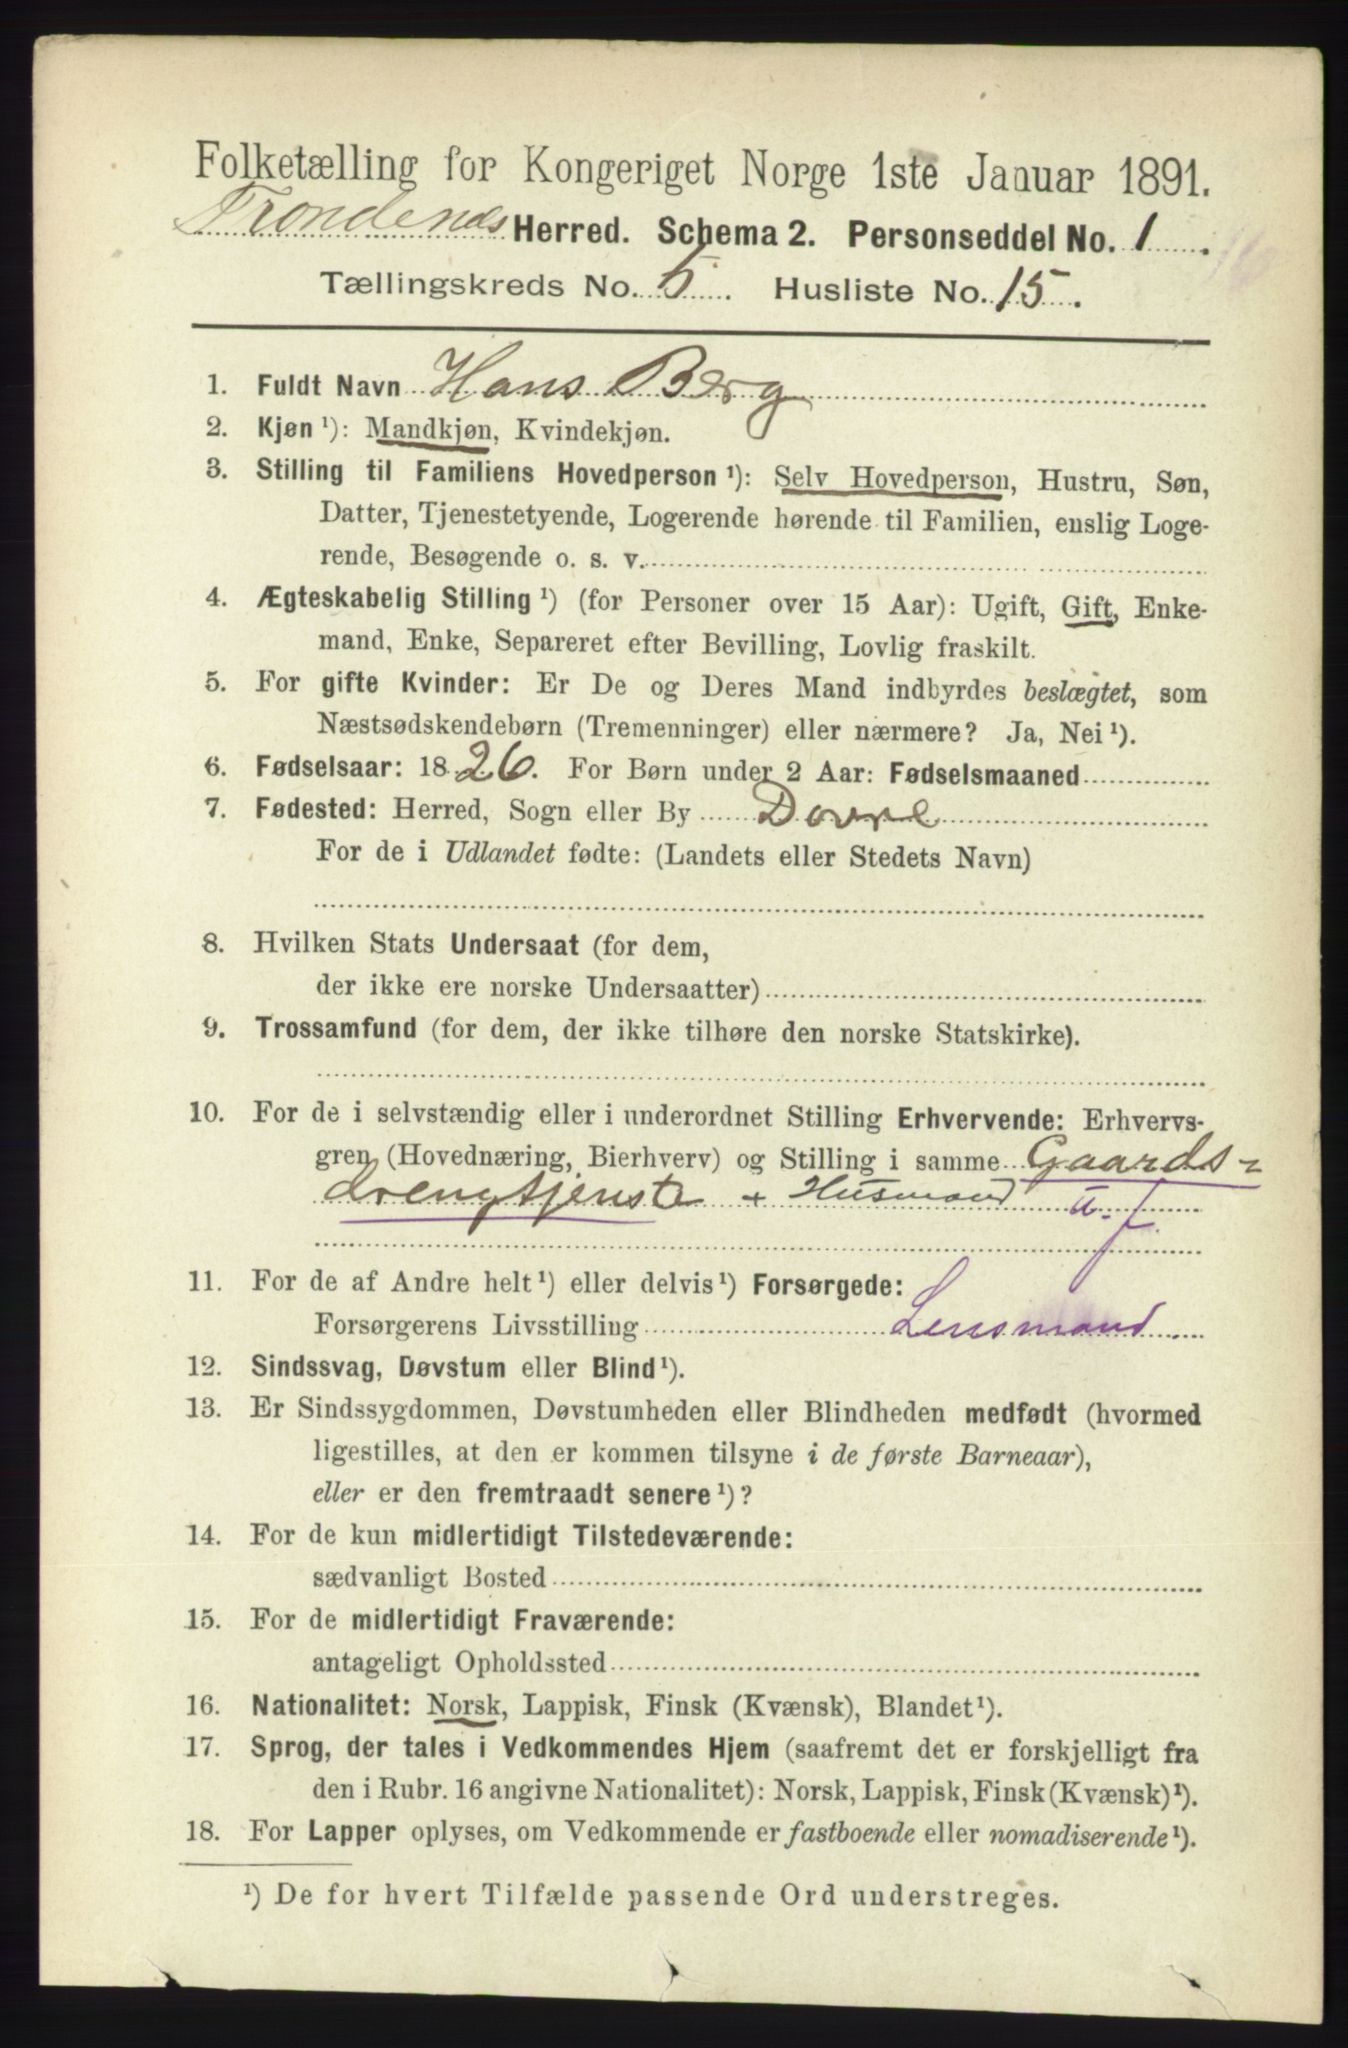 Folketælling for Kongeriget Norge 1ste Januar 1891.
Trondenæs Herred. Schema 2. Personseddel No. 1.
Tællingskreds No. 5. Husliste No. 15.
1. Fuldt Navn Hans Berg
2. Kjøn ¹): Mandkjøn, Kvindekjøn.
3. Stilling til Familiens Hovedperson ¹): Selv Hovedperson, Hustru, Søn,
Datter, Tjenestetyende, Logerende hørende til Familien, enslig Loge-
rende, Besøgende o. s. v.
4. Ægteskabelig Stilling ¹) (for Personer over 15 Aar): Ugift, Gift, Enke-
mand, Enke, Separeret efter Bevilling, Lovlig fraskilt.
5. For gifte Kvinder: Er De og Deres Mand indbyrdes beslægtet, som
Næstsødskendebørn (Tremenninger) eller nærmere? Ja, Nei ¹).
6. Fødselsaar: 1826. For Børn under 2 Aar: Fødselsmaaned
7. Fødested: Herred, Sogn eller By Dovre
For de i Udlandet fødte: (Landets eller Stedets Navn)
8. Hvilken Stats Undersaat (for dem,
der ikke ere norske Undersaatter)
9. Trossamfund (for dem, der ikke tilhøre den norske Statskirke).
10. For de i selvstændig eller i underordnet Stilling Erhvervende: Erhvervs-
gren (Hovednæring, Bierhverv) og Stilling i samme Gaards-
drengtjenste + Husmand u. J.
11. For de af Andre helt ¹) eller delvis ¹) Forsørgede:
Forsørgerens Livsstilling Lensmand
12. Sindssvag, Døvstum eller Blind ¹).
13. Er Sindssygdommen, Døvstumheden eller Blindheden medfødt (hvormed
ligestilles, at den er kommen tilsyne i de første Barneaar),
eller er den fremtraadt senere ¹)?
14. For de kun midlertidigt Tilstedeværende:
sædvanligt Bosted
15. For de midlertidigt Fraværende:
antageligt Opholdssted
16. Nationalitet: Norsk, Lappisk, Finsk (Kvænsk), Blandet ¹).
17. Sprog, der tales i Vedkommendes Hjem (saafremt det er forskjelligt fra
den i Rubr. 16 angivne Nationalitet): Norsk, Lappisk, Finsk (Kvænsk) ¹).
18. For Lapper oplyses, om Vedkommende er fastboende eller nomadiserende ¹).
¹) De for hvert Tilfælde passende Ord understreges.